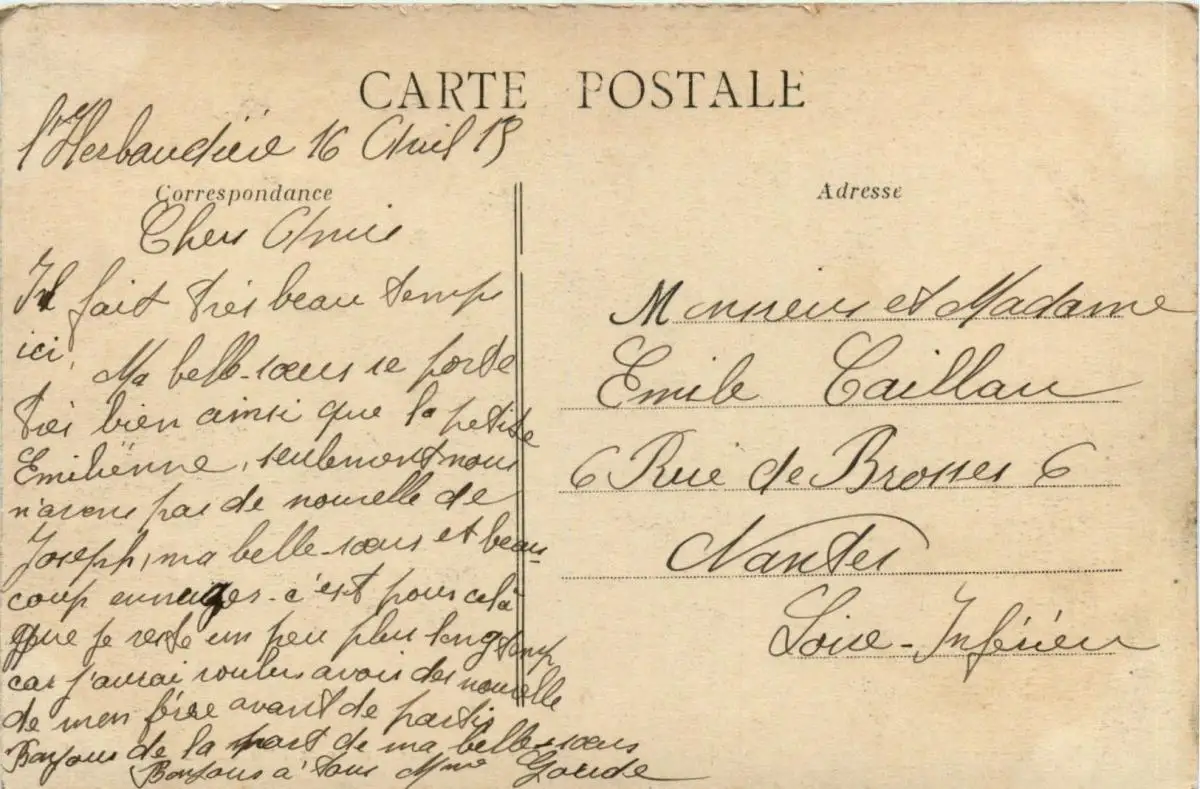 CARTE POSTALE
l'Herbaudière 16 Avril 15
Correspondance
Chers Amis
Il fait très beau temps
ici, Ma belle-sœur se porte
très bien ainsi que la petite
Emiliènne, seulement nous
n'avons pas de nouvelle de
Joseph, ma belle-sœur et beau-
coup ennuyer - c'est pour celà
que je reste un peu plus longtemp
car j'aurai voulus avoir des nouvelle
de mon frère avant de partir
Bonjour de la part de ma belle-sœur
Bonjour à tous Mme Goude
Adresse
Monsieur et Madame
Emile Caillau
6 Rue de Brosses 6
Nantes
Loire-Inférieu